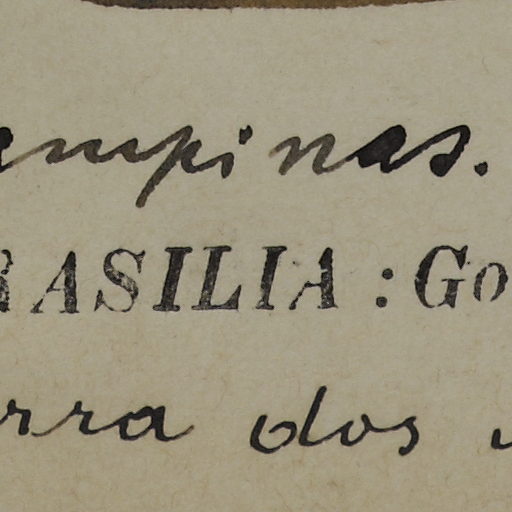 ampinas.
RASILIA : Go
rra dos